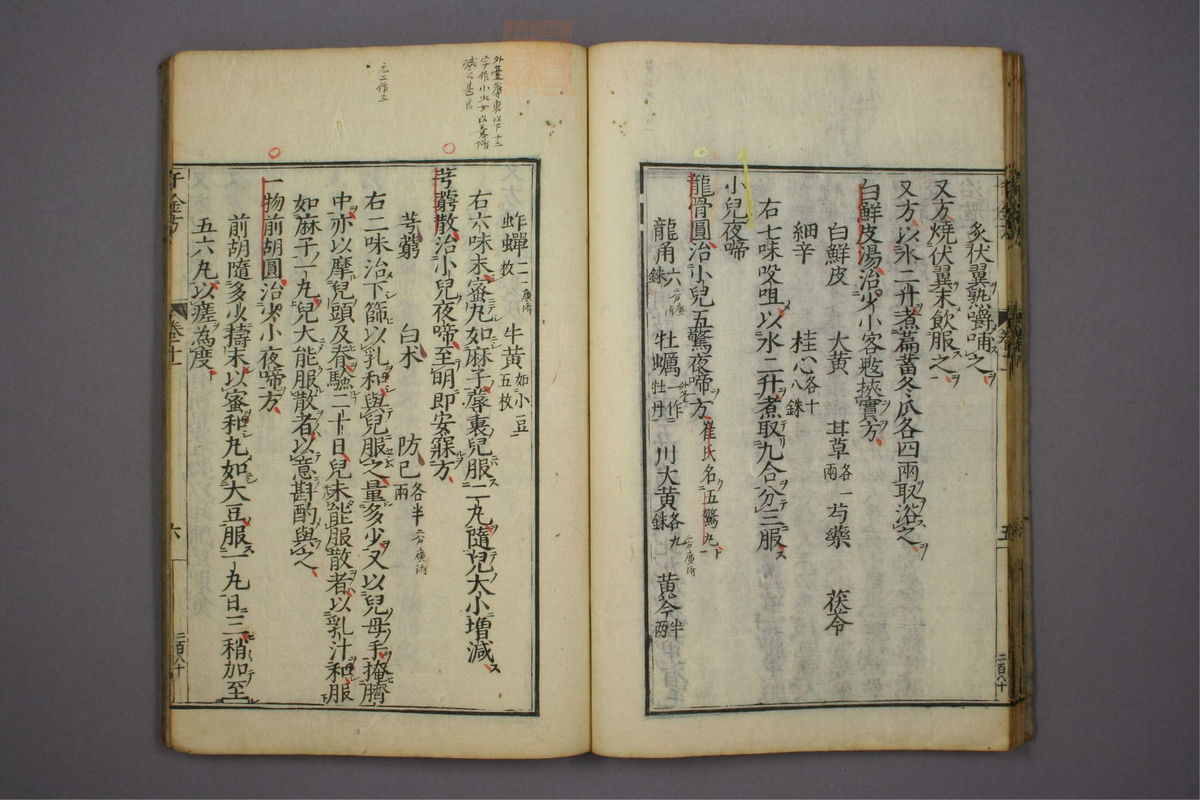 炙伏翼熟嚼哺之
又方燒伏翼末飲服之
又方以水二升煮萹蓄冬瓜各四兩取浴之
白鮮皮湯治少小客忤挾實方
白鮮皮 大黃 甘草各一兩 芍藥 茯苓
細辛 桂心各十八銖
右七味㕮咀以水二升煮取九合分三服
小兒夜啼
龍骨圓治小兒五驚夜啼方 崔氏名五驚丸
龍角六銖 牡蠣一作牡丹 川大黃各九銖 黃芩半兩
五
二百八十
外臺蓐裏以下十二
字作小以意增
減之甚良
元二作三
蚱蟬二枚 牛黃如小豆五枚
右六味末蜜丸如麻子蓐裏兒服二丸隨兒大小增減
芎藭散治小兒夜啼至明即安寐方
芎藭 白朮 防己各半兩
右三味治下篩以乳和與兒服之量多少又以兒母手掩臍
中亦以摩兒頭及脊驗二十日兒未能服散者以乳汁和服
如麻子一丸兒大能服散者以意斟酌與之
一物前胡圓治少小夜啼方
前胡隨多少擣末以蜜和丸如大豆服一丸日三稍加至
五六丸以瘥為度
千金方
卷十一
六
二百八十